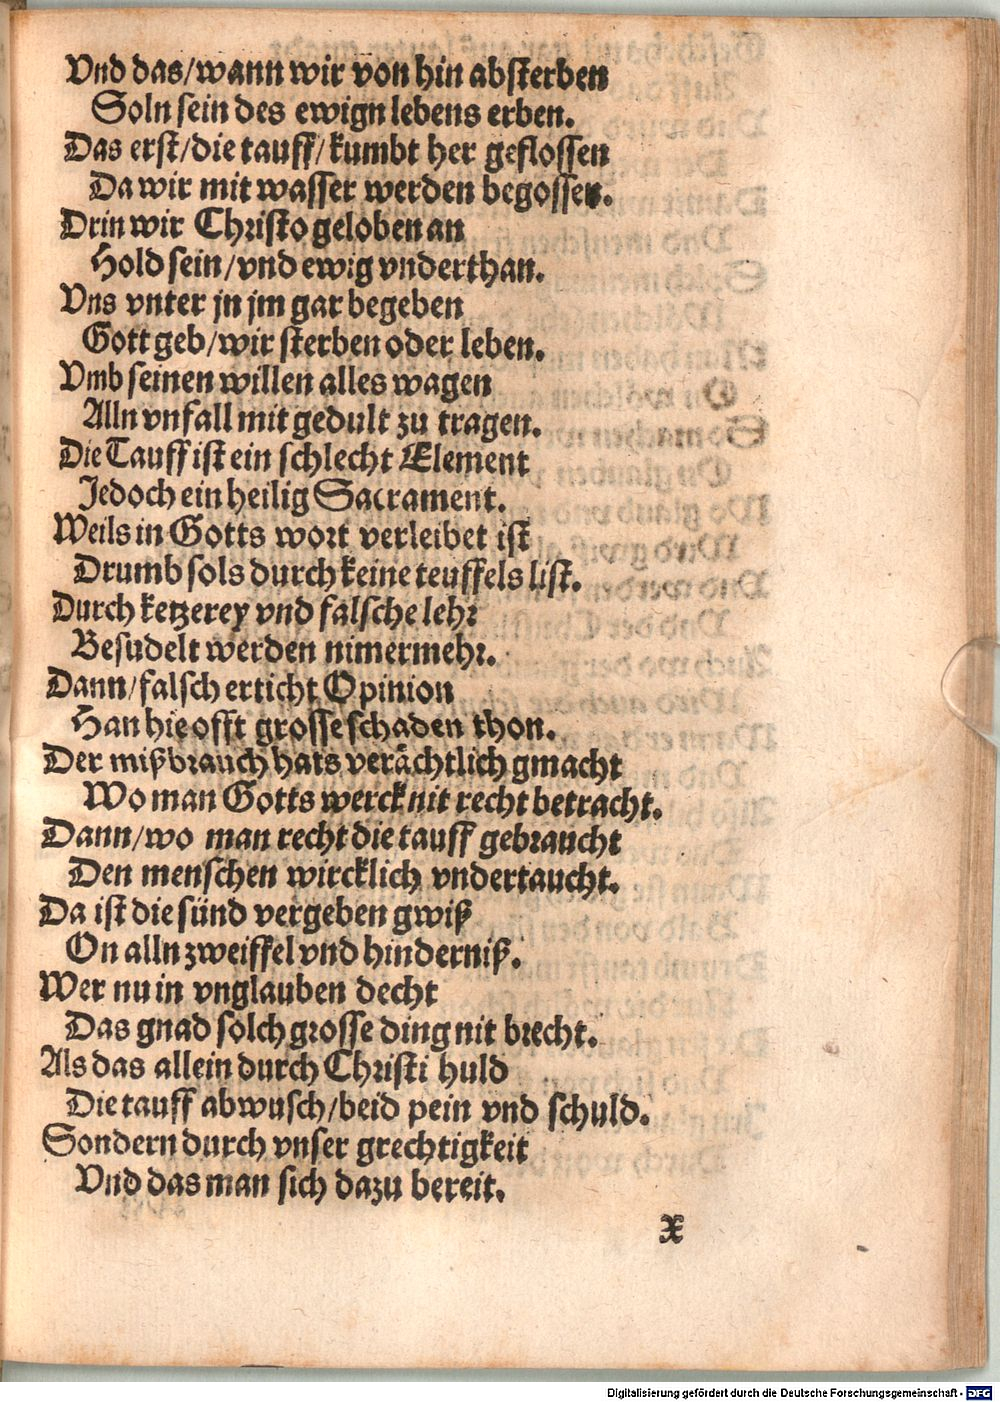 Vnd das/wann wir von hin absterben
Soln sein des ewign lebens erben.
Das erst/die tauff/kumbt her geflossen
Da wir mit wasser werden begossen.
Drin wir Christo geloben an
Hold sein/vnd ewig vnderthan.
Vns vnter jn jm gar begeben
Gott geb/wir sterben oder leben.
Vmb seinen willen alles wagen
Alln vnfall mit gedult zu tragen.
Die Tauff ist ein schlecht Element
Jedoch ein heilig Sacrament.
Weils in Gotts wort verleibet ist
Drumb sols durch keine teuffels list.
Durch ketzerey vnd falsche lehr
Besudelt werden nimermehr.
Dann/falsch erticht Opinion
Han hie offt grosse schaden thon.
Der mißbrauch hats verächtlich gmacht
Wo man Gotts werck nit recht betracht.
Dann/wo man recht die tauff gebraucht
Den menschen wircklich vndertaucht.
Da ist die sünd vergeben gwiß
On alln zweiffel vnd hinderniß.
Wer nu in vnglauben decht
Das gnad solch grosse ding nit brecht.
Als das allein durch Christi huld
Die tauff abwusch/beid pein vnd schuld.
Sondern durch vnser grechtigkeit
Vnd das man sich dazu bereit.
X
Digitalisierung gefördert durch die Deutsche Forschungsgemeinschaft - DFG